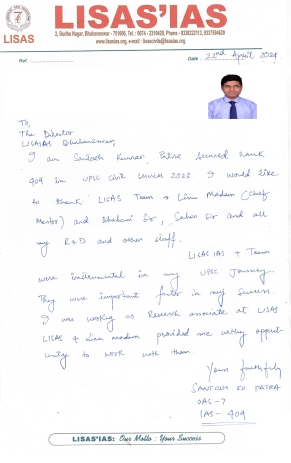 LISAS'IAS
LISAS
2, Budha Nagar, Bhubaneswar - 751006, Tel.: 0674 - 2310429, Phone - 9338222113, 9337504629
www.lisasias.org, e-mail : lisascivils@lisasias.org
Ref
Date 22nd April 2024
To,
The Director
LISA'IAS Bhubaneswar,
I am Santosh Kumar, Patra secured rank
409 in UPSC Civil Services 2023. I would like
to thank LISAS Team → Linu Madam (Chief
Mentor) and Bhabani Sir, Sahoo Sir and all
my R&D and other staff.
LISAS IAS + Team
were instrumental in my UPSC Journey.
They were important factor in my success.
I was working as Research associate at LISAS
LISAS & Linu madam provided me opport-
unity to work with them.
Yours faithfully
SANTOSH KU PATRA
OAS-7
IAS-409
LISAS'IAS: Our Motto : Your Success